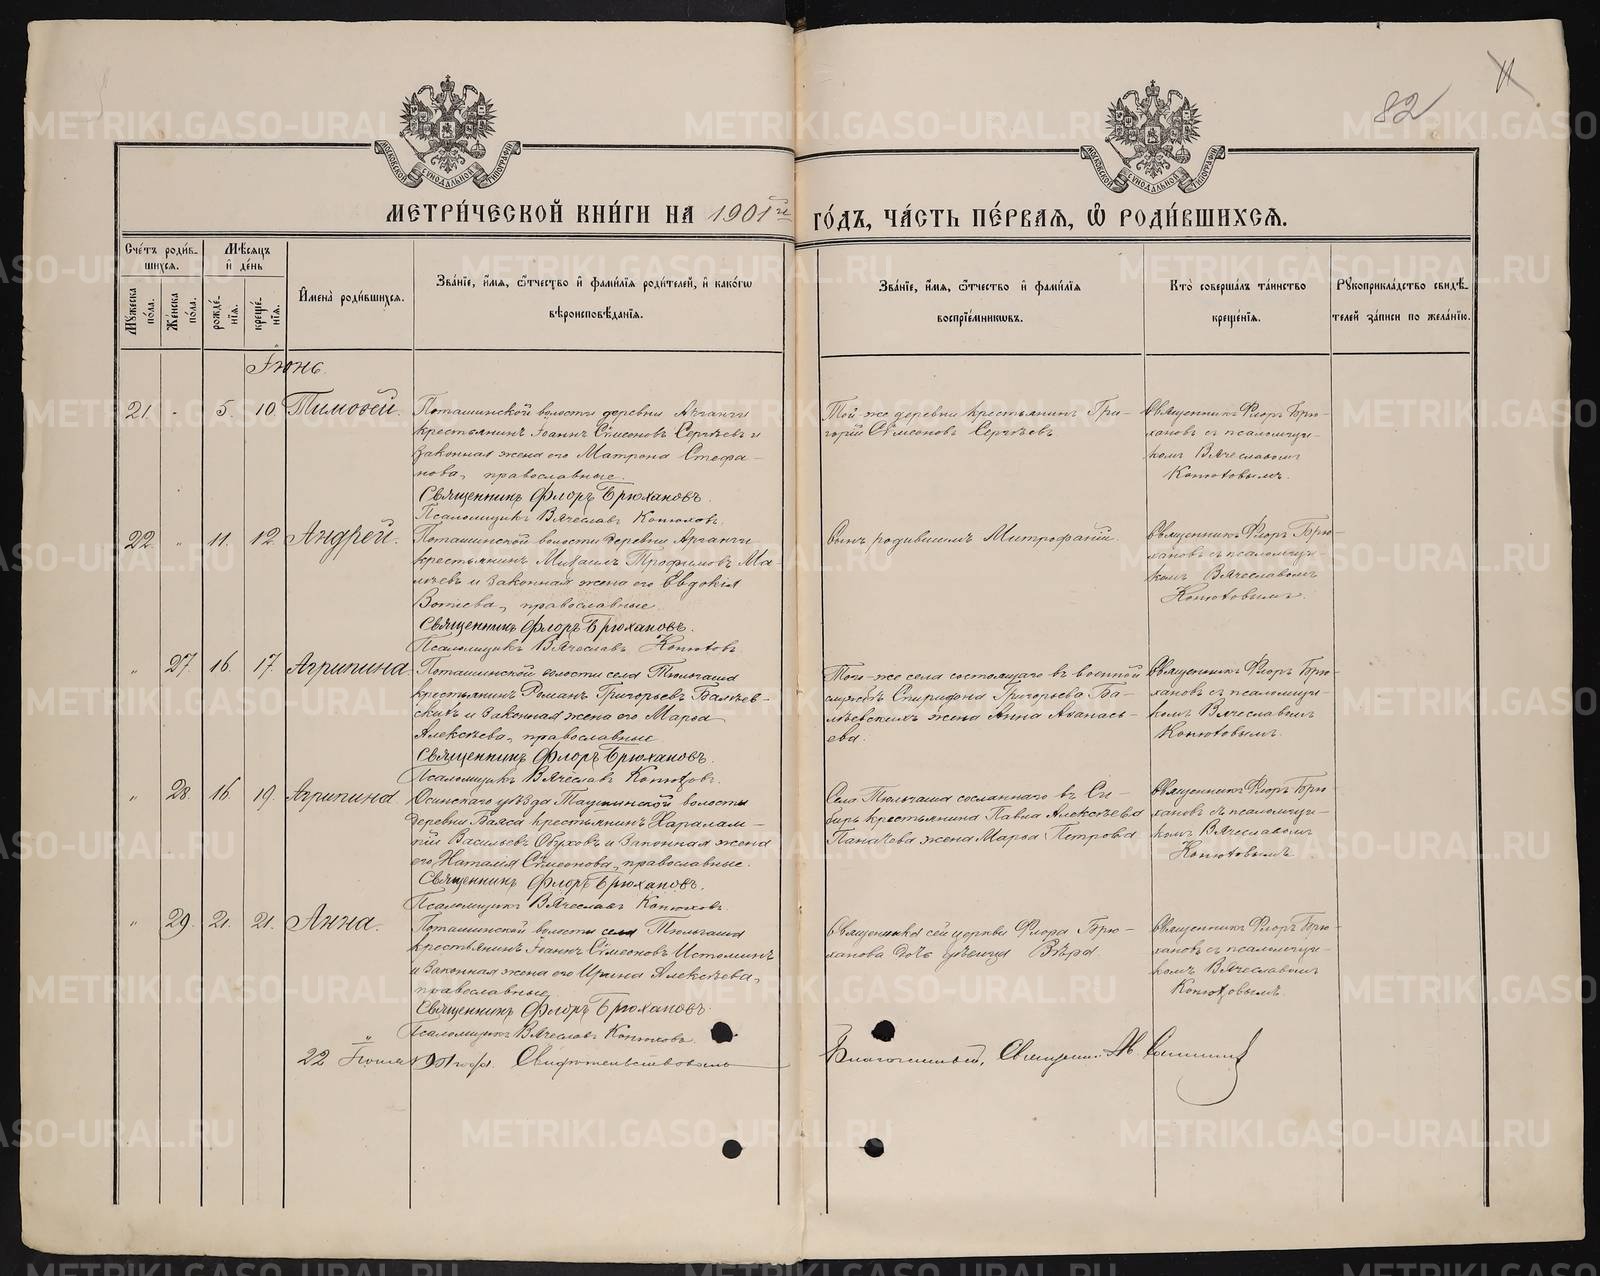 82
МЕТРИ́ЧЕСКОЙ КНИ́ГИ НА 1901й ГО́ДЪ, ЧА́СТЬ ПЕ́РВАЯ, Ѡ РОДИ́ВШИХСЯ.
Сче́тъ роди́в-
шихся.
Мѣ́сяцъ
и де́нь
Мꙋ́жеска по́ла.
Же́нска по́ла.
рожде́-
нїя.
креще́-
нїя.
Имена̀ роди́вшихся.
Зва́нїе, и́мя, ѻ́тчество и фами́лїя роди́телей, и како́гѡ
вѣроисповѣ́данїя.
Зва́нїе, и́мя, ѻ́тчество и фами́лїя
воспрїе́мникѡвъ.
Кто̀ соверша́лъ та́инство
креще́нїя.
Рꙋкоприкла́дство свидѣ́-
телей за́писи по жела́нїю.
Іюнь.
21. - 5. 10. Тимоѳей.
Поташинской волости деревни Арганчи
крестьянинъ Іоаннъ Сѵмеоновъ Сергѣевъ и
законная жена его Матрона Стефа-
нова, православные.
Священникъ Флоръ Брюхановъ.
Псаломщикъ Вячеславъ Конюховъ.
Той же деревни крестьянинъ Гри-
горій Сѵмеоновъ Сергѣевъ
Священникъ Флоръ Брю-
хановъ съ псаломщи-
комъ Вячеславомъ
Конюховымъ.
22 " 11. 12. Андрей.
Поташинской волости деревни Арганчи
крестьянинъ Михаилъ Трофимовъ Ма-
и законная жена его Евдокія
православные.
Священникъ Флоръ Брюхановъ.
Псаломщикъ Вячеславъ Конюховъ
Сынъ родившемъ Митрофаній.
Священникъ Флоръ Брю-
хановъ съ псаломщи-
комъ Вячеславомъ
Конюховымъ.
" 27. 16. 17. Агрипина.
Поташинской волости села Тюльгаша
крестьянинъ Романъ Григорьевъ Балѣев-
скихъ и законная жена его Марѳа
Алексѣева, православные
Священникъ Флоръ Брюхановъ.
Псаломщикъ Вячеславъ Конюховъ.
Того-же села состоящаго въ военной
службѣ Спиридона Григорьева Ба-
лѣевскихъ жена Анна Аѳанась-
ева.
Священникъ Флоръ Брю-
хановъ съ псаломщи-
комъ Вячеславомъ
Конюховымъ.
" 28. 16. 19. Агрипина
Осинскаго уѣзда Таушинской волости
деревни Ваяса крестьянинъ Харалам-
пій Васильевъ Обуховъ и законная жена
его Наталія Сѵмеонова, православные.
Священникъ Флоръ Брюхановъ.
Псаломщикъ Вячеславъ Конюховъ.
Села Тюльгаша сосланнаго въ Си-
бирь крестьянина Павла Алексѣева
жена Марѳа Петрова
Священникъ Флоръ Брю-
хановъ съ псаломщи-
комъ Вячеславомъ
Конюховымъ
" 29. 21. 21. Анна.
Поташинской волости села Тюльгаша
крестьянинъ Іоаннъ Сѵмеоновъ Истоминъ
и законная жена его Ирина Алексѣева,
православные.
Священникъ Флоръ Брюхановъ.
Псаломщикъ Вячеславъ Конюховъ.
Священника сей церкви Флора Брю-
ханова дочь дѣвица Вѣра.
Священникъ Флоръ Брю-
хановъ съ псаломщи-
комъ Вячеславомъ
Конюховымъ.
22 Іюля 901 года. Свидѣтельствовалъ
Благочинный, Священникъ